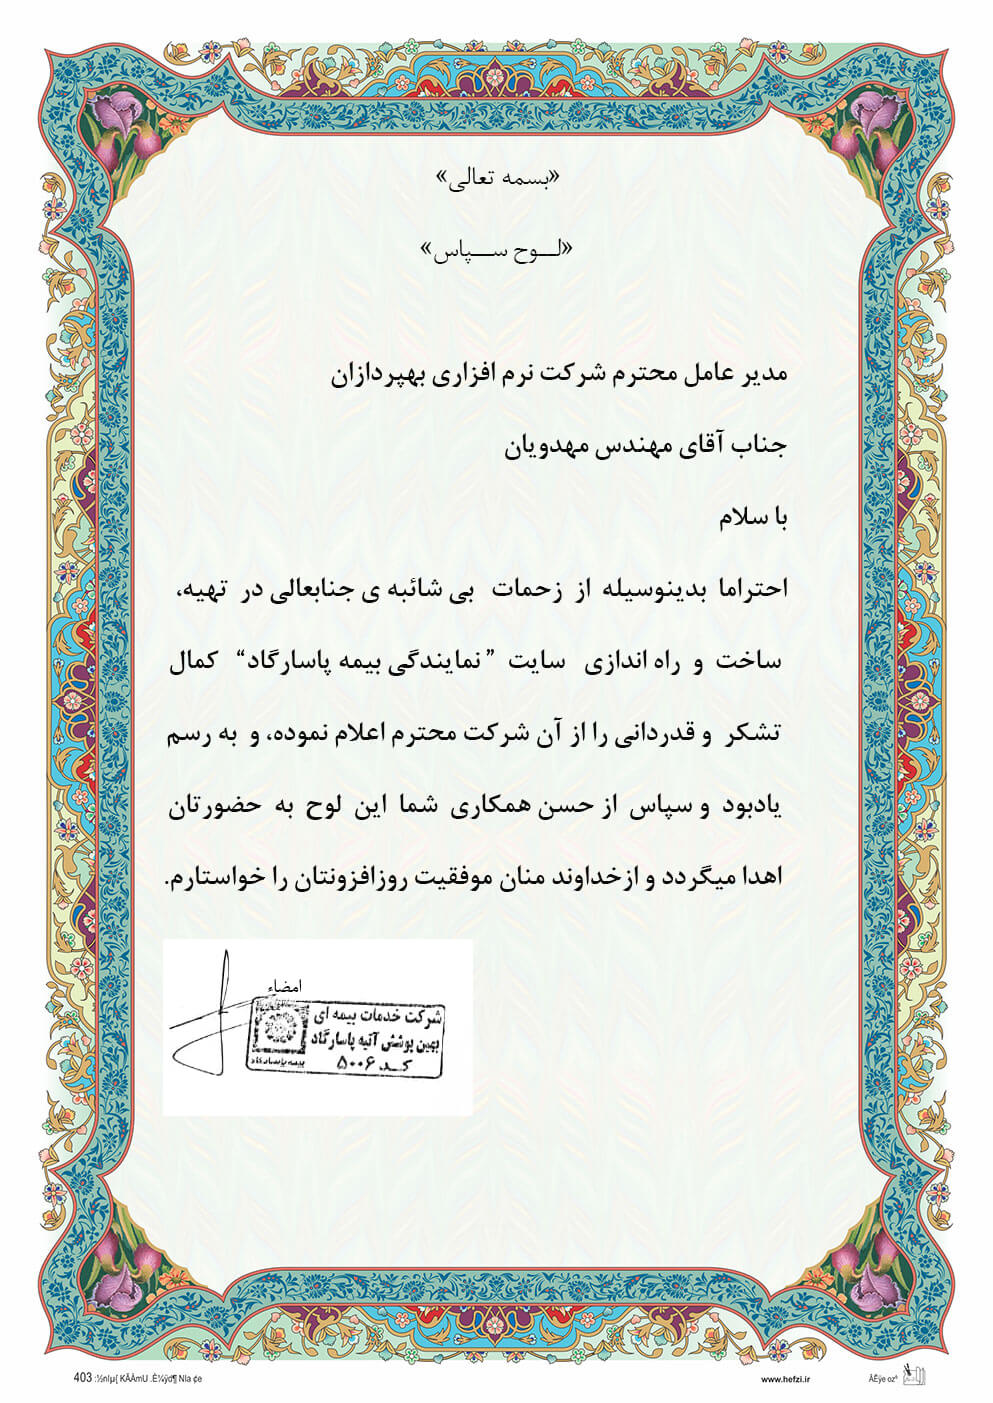 «بسمه تعالی»
«لـــوح ســـپاس»
مدیر عامل محترم شرکت نرم افزاری بهپردازان
جناب آقای مهندس مهدویان
با سلام
احتراما بدینوسیله از زحمات بی شائبه ی جنابعالی در تهیه،
ساخت و راه اندازی سایت ” نمایندگی بیمه پاسارگاد“ کمال
تشکر و قدردانی را از آن شرکت محترم اعلام نموده، و به رسم
یادبود و سپاس از حسن همکاری شما این لوح به حضورتان
اهدا میگردد و ازخداوند منان موفقیت روزافزونتان را خواستارم.
امضاء
شرکت خدمات بیمه ای
بهین پوشش آتیه پاسارگاد
کـد ۵۰۰۶
بیمه پاسارگاد
403
www.hefzi.ir